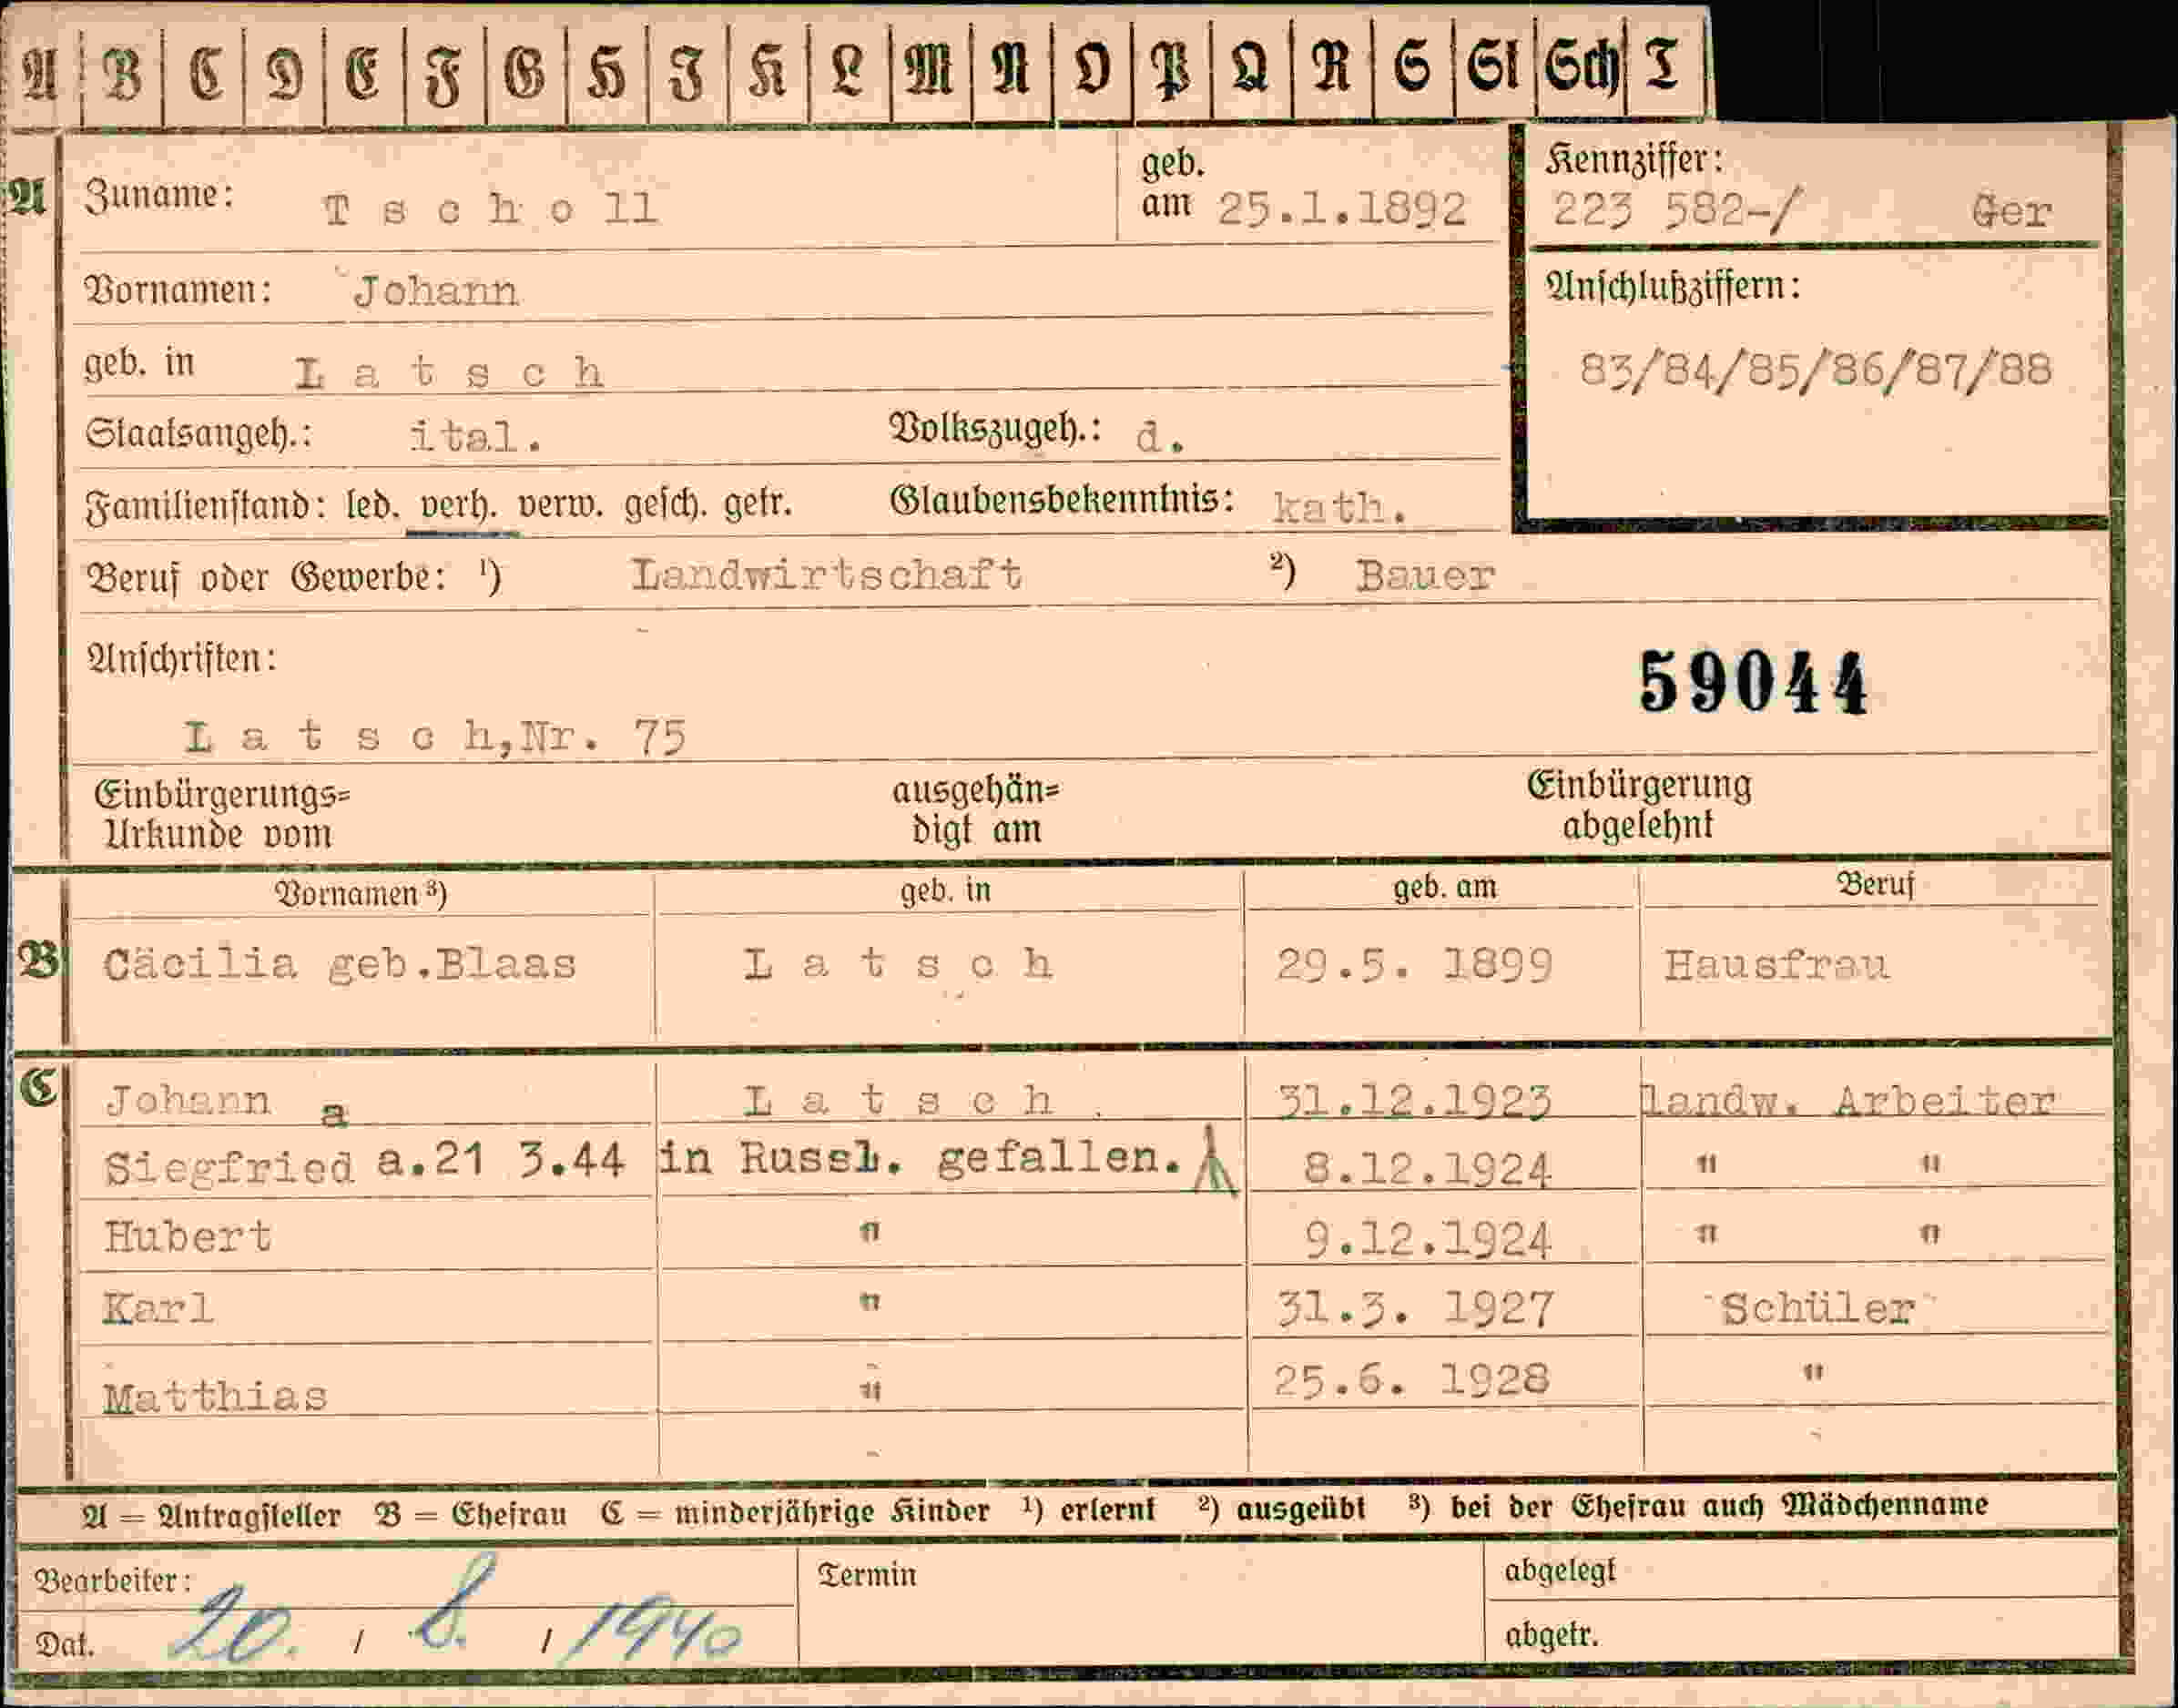 A B C D E F G H J K L M N O P Q R S St Sch T
A Zuname: Tscholl geb. am 25.1.1892 Kennziffer: 223 582-/ Ger
Vornamen: Johann Anschlußziffern:
geb. in Latsch 83/84/85/86/87/88
Staatsangeh.: ital. Volkszugeh.: d.
Familienstand: led. verh. verw. gesch. getr. Glaubensbekenntnis: kath.
Beruf oder Gewerbe: ¹) Landwirtschaft ²) Bauer
Anschriften: 59044
Latsch,Nr. 75
Einbürgerungs= ausgehän= Einbürgerung
Urkunde vom digt am abgelehnt
Vornamen ³) geb. in geb. am Beruf
B Cäcilia geb.Blaas Latsch 29.5. 1899 Hausfrau
C Johann a Latsch 31.12.1923 landw. Arbeiter
Siegfried a.21 3.44 in Russl. gefallen. 8.12.1924 " "
Hubert " 9.12.1924 " "
Karl " 31.3. 1927 Schüler
Matthias " 25.6. 1928 "
A = Antragsteller B = Ehefrau C = minderjährige Kinder ¹) erlernt ²) ausgeübt ³) bei der Ehefrau auch Mädchenname
Bearbeiter: Termin abgelegt
Dat. 20. / 8. / 1940 abgetr.